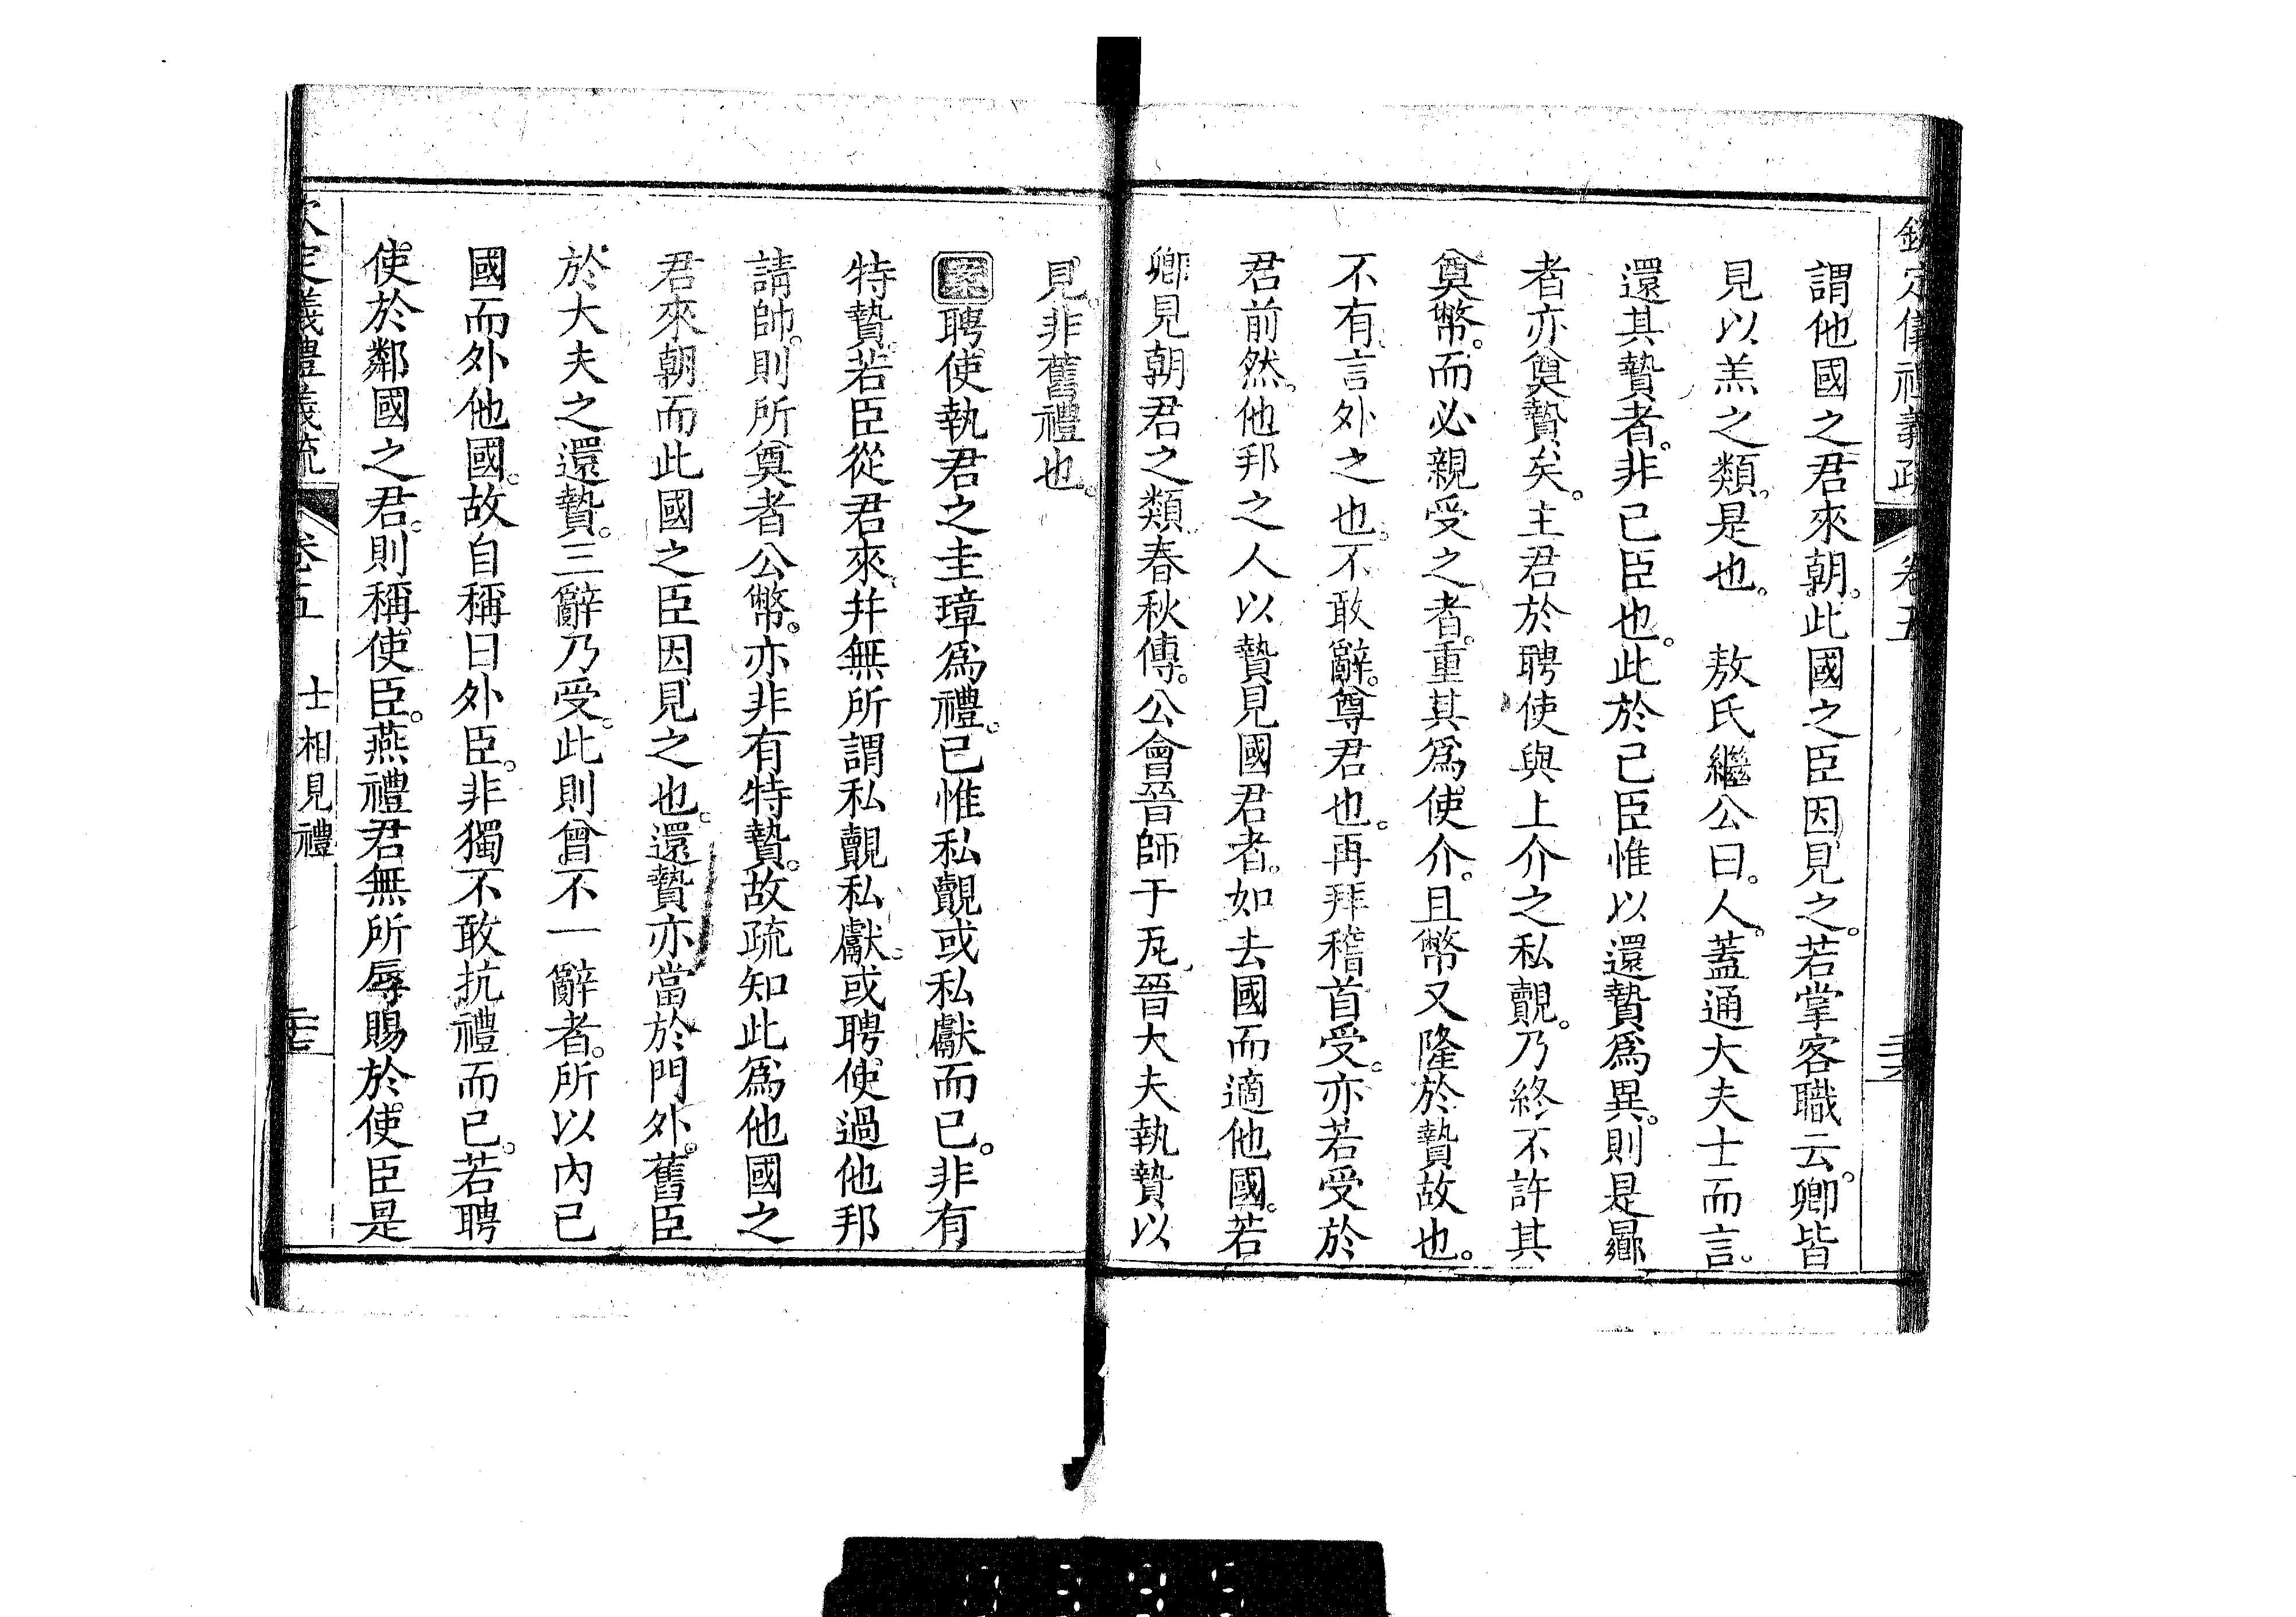 欽定儀禮義疏　卷五
謂他國之君來朝。此國之臣因見之。若掌客職云。卿皆
見以羔之類。是也。　敖氏繼公曰。人。蓋通大夫士而言。
還其贄者。非己臣也。此於己臣惟以還贄爲異。則是曏
者亦奠贄矣。主君於聘使與上介之私覿。乃終不許其
奠幣。而必親受之者。重其爲使介。且幣又隆於贄故也。
不有言外之也。不敢辭。尊君也。再拜稽首受。亦若受於
君前然。他邦之人以贄見國君者。如去國而適他國。若
卿見朝君之類。春秋傳。公會晉師于瓦。晉大夫執贄以
見。非舊禮也。
案聘使執君之圭璋爲禮。已惟私覿或私獻而已。非有
特贄。若臣從君來。幷無所謂私覿私獻。或聘使過他邦
請帥。則所奠者公幣。亦非有特贄。故疏知此爲他國之
君來朝而此國之臣因見之也。還贄亦當於門外。舊臣
於大夫之還贄。三辭乃受。此則曾不一辭者。所以內己
國而外他國。故自稱曰外臣。非獨不敢抗禮而已。若聘
使於鄰國之君。則稱使臣。燕禮君無所辱賜於使臣是
欽定儀禮義疏　卷五　士相見禮